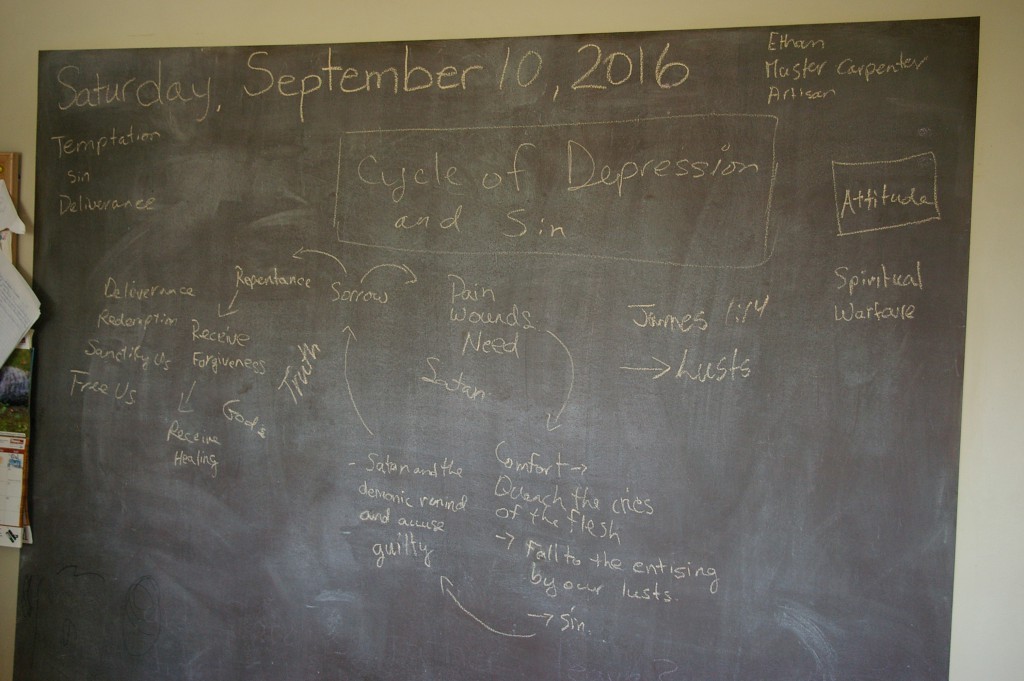 Saturday, September 10, 2016
Ethan
Master Carpenter
Artisan
Temptation
Sin
Deliverance
Cycle of Depression
and Sin
Attitude
Spiritual
Warfare
Deliverance
Redemption
Sanctify Us
Free Us
Repentance
Receive
Forgiveness
Receive
Healing
God's
Truth
Sorrow
Pain
Wounds
Need
Satan
James 1:14
→ Lusts
Comfort →
Quench the cries
of the flesh
→ Fall to the entising
by our lusts.
→ Sin.
- Satan and the
demonic remind
and accuse
- guilty